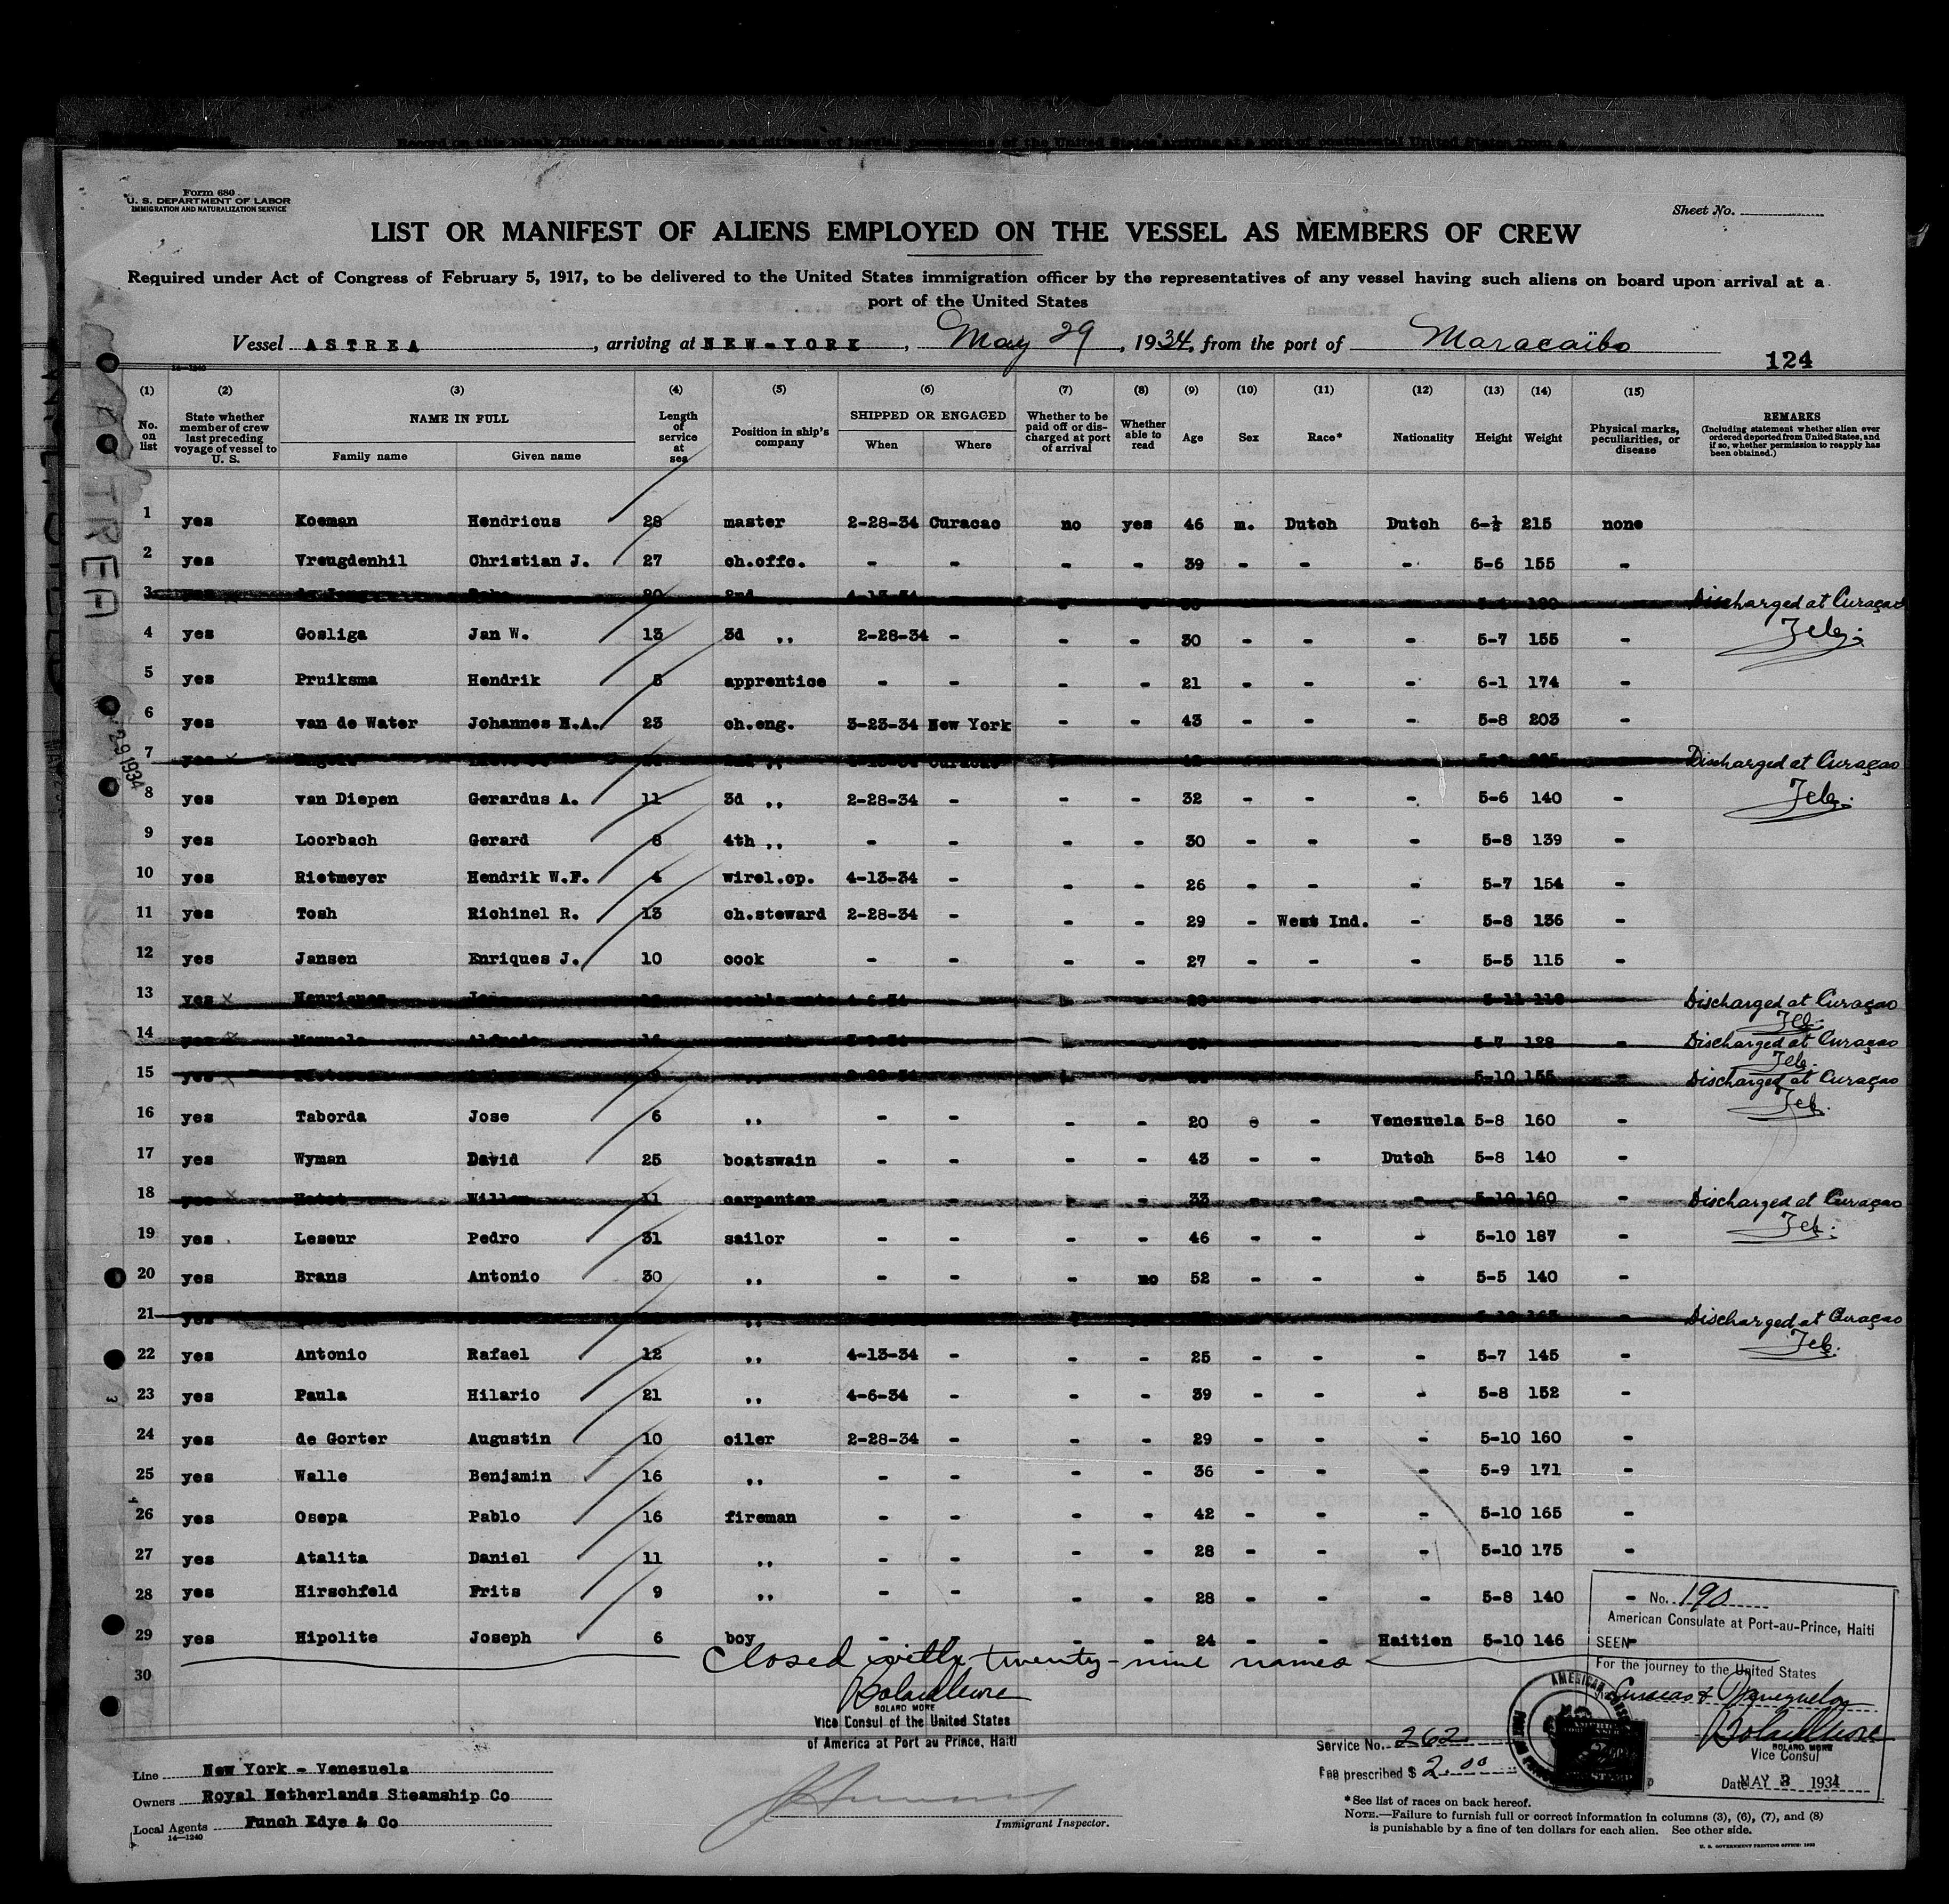 Form 680
U. S. DEPARTMENT OF LABOR
IMMIGRATION AND NATURALIZATION SERVICE
Sheet No.
LIST OR MANIFEST OF ALIENS EMPLOYED ON THE VESSEL AS MEMBERS OF CREW
Required under Act of Congress of February 5, 1917, to be delivered to the United States immigration officer by the representatives of any vessel having such aliens on board upon arrival at a
port of the United States
Vessel ASTREA, arriving at NEW-YORK, May 29, 1934, from the port of Maracaïbo
124
14—1240
(1) (2) (3) (4) (5) (6) (7) (8) (9) (10) (11) (12) (13) (14) (15)
No. on list State whether member of crew last preceding voyage of vessel to U. S. NAME IN FULL Family name Given name Length of service at sea Position in ship's company SHIPPED OR ENGAGED When Where Whether to be paid off or discharged at port of arrival Whether able to read Age Sex Race* Nationality Height Weight Physical marks, peculiarities, or disease REMARKS (Including statement whether alien ever ordered deported from United States, and if so, whether permission to reapply has been obtained.)
1 yes Koeman Hendricus 28 master 2-28-34 Curacao no yes 46 m. Dutch Dutch 6-½ 215 none
2 yes Vreugdenhil Christian J. 27 ch.offc. - - - - 39 - - - 5-6 155 -
3 20 2nd 4-13-34 Discharged at Curaçao
4 yes Gosliga Jan W. 13 3d ,, 2-28-34 - - - 30 - - - 5-7 155 -
5 yes Pruiksma Hendrik 5 apprentice - - - - 21 - - - 6-1 174 -
6 yes van de Water Johannes H.A. 23 ch.eng. 3-23-34 New York - - 43 - - - 5-8 203 -
7 yes 2nd ,, Curacao Discharged at Curaçao
8 yes van Diepen Gerardus A. 11 3d ,, 2-28-34 - - - 32 - - - 5-6 140 -
9 yes Loorbach Gerard 8 4th ,, - - - - 30 - - - 5-8 139 -
10 yes Rietmeyer Hendrik W.F. 4 wirel.op. 4-13-34 - - - 26 - - - 5-7 154 -
11 yes Tosh Richinel R. 13 ch.steward 2-28-34 - - - 29 - West Ind. - 5-8 136 -
12 yes Jansen Enriques J. 10 cook - - - - 27 - - - 5-5 115 -
13 yes Henriques 4-6-34 5-11 Discharged at Curaçao
14 yes 5-7 128 - Discharged at Curaçao
15 yes ,, 2-28-34 5-10 155 - Discharged at Curaçao
16 yes Taborda Jose 6 ,, - - - - 20 - - Venezuela 5-8 160 -
17 yes Wyman David 25 boatswain - - - - 43 - - Dutch 5-8 140 -
18 yes Willem 11 carpenter - - - - 33 - - - 5-10 160 - Discharged at Curaçao
19 yes Leseur Pedro 31 sailor - - - - 46 - - - 5-10 187 -
20 yes Brans Antonio 30 ,, - - - no 52 - - - 5-5 140 -
21 yes ,, Discharged at Curaçao
22 yes Antonio Rafael 12 ,, 4-13-34 - - - 25 - - - 5-7 145 -
23 yes Paula Hilario 21 ,, 4-6-34 - - - 39 - - - 5-8 152 -
24 yes de Gorter Augustin 10 oiler 2-28-34 - - - 29 - - - 5-10 160 -
25 yes Walle Benjamin 16 ,, - - - - 36 - - - 5-9 171 -
26 yes Osepa Pablo 16 fireman - - - - 42 - - - 5-10 165 -
27 yes Atalita Daniel 11 ,, - - - - 28 - - - 5-10 175 -
28 yes Hirschfeld Frits 9 ,, - - - - 28 - - - 5-8 140 -
29 yes Hipolite Joseph 6 boy - - - - 24 - - Haitien 5-10 146 -
30
Closed with twenty-nine names
BOLARD MORE
Vice Consul of the United States
of America at Port au Prince, Haiti
No. 190
American Consulate at Port-au-Prince, Haiti
SEEN
For the journey to the United States
Curacao & Venezuela
BOLARD MORE
Vice Consul
Date MAY 3 1934
Service No. 262
Fee prescribed $ 2.00
Line New York - Venezuela
Owners Royal Netherlands Steamship Co
Local Agents Funch Edye & Co
14—1240
Immigrant Inspector.
*See list of races on back hereof.
NOTE.—Failure to furnish full or correct information in columns (3), (6), (7), and (8)
is punishable by a fine of ten dollars for each alien. See other side.
U. S. GOVERNMENT PRINTING OFFICE: 1933
ASTREA
29 1934